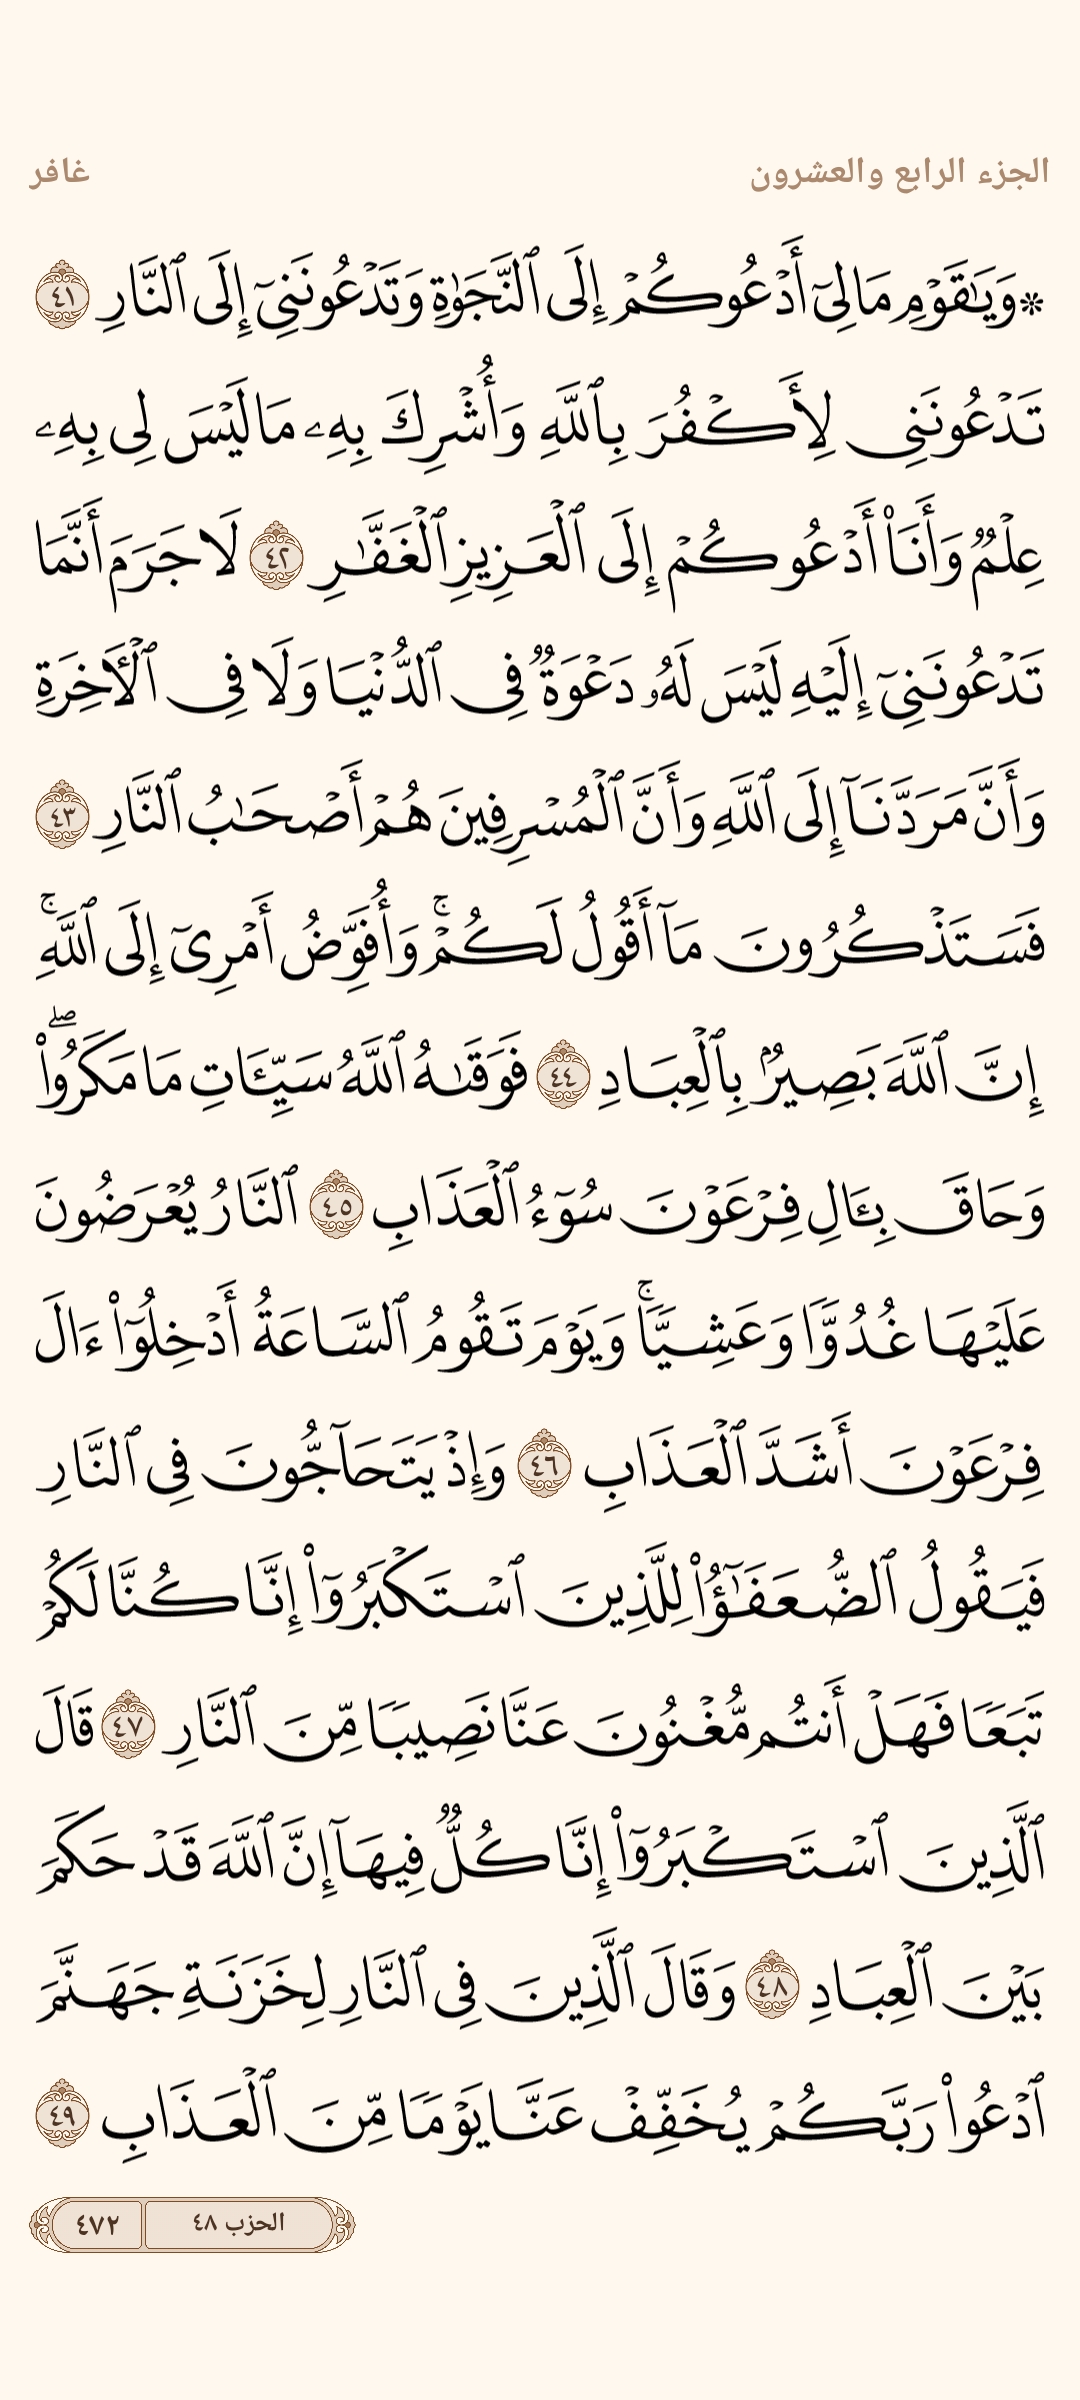 الجزء الرابع والعشرون
غافر
۞وَيَٰقَوۡمِ مَالِيٓ أَدۡعُوكُمۡ إِلَى ٱلنَّجَوٰةِ وَتَدۡعُونَنِيٓ إِلَى ٱلنَّارِ ٤١
تَدۡعُونَنِي لِأَكۡفُرَ بِٱللَّهِ وَأُشۡرِكَ بِهِۦ مَالَيۡسَ لِي بِهِۦ
عِلۡمٞ وَأَنَا۠ أَدۡعُوكُمۡ إِلَى ٱلۡعَزِيزِ ٱلۡغَفَّٰرِ ٤٢ لَا جَرَمَ أَنَّمَا
تَدۡعُونَنِيٓ إِلَيۡهِ لَيۡسَ لَهُۥ دَعۡوَةٞ فِي ٱلدُّنۡيَا وَلَا فِي ٱلۡأٓخِرَةِ
وَأَنَّ مَرَدَّنَآ إِلَى ٱللَّهِ وَأَنَّ ٱلۡمُسۡرِفِينَ هُمۡ أَصۡحَٰبُ ٱلنَّارِ ٤٣
فَسَتَذۡكُرُونَ مَآ أَقُولُ لَكُمۡۚ وَأُفَوِّضُ أَمۡرِيٓ إِلَى ٱللَّهِۚ
إِنَّ ٱللَّهَ بَصِيرُۢ بِٱلۡعِبَادِ ٤٤ فَوَقَىٰهُ ٱللَّهُ سَيِّـَٔاتِ مَا مَكَرُواْۖ
وَحَاقَ بِـَٔالِ فِرۡعَوۡنَ سُوٓءُ ٱلۡعَذَابِ ٤٥ ٱلنَّارُ يُعۡرَضُونَ
عَلَيۡهَا غُدُوّٗا وَعَشِيّٗاۚ وَيَوۡمَ تَقُومُ ٱلسَّاعَةُ أَدۡخِلُوٓاْ ءَالَ
فِرۡعَوۡنَ أَشَدَّ ٱلۡعَذَابِ ٤٦ وَإِذۡ يَتَحَآجُّونَ فِي ٱلنَّارِ
فَيَقُولُ ٱلضُّعَفَٰٓؤُاْ لِلَّذِينَ ٱسۡتَكۡبَرُوٓاْ إِنَّا كُنَّا لَكُمۡ
تَبَعٗا فَهَلۡ أَنتُم مُّغۡنُونَ عَنَّا نَصِيبٗا مِّنَ ٱلنَّارِ ٤٧ قَالَ
ٱلَّذِينَ ٱسۡتَكۡبَرُوٓاْ إِنَّا كُلّٞ فِيهَآ إِنَّ ٱللَّهَ قَدۡ حَكَمَ
بَيۡنَ ٱلۡعِبَادِ ٤٨ وَقَالَ ٱلَّذِينَ فِي ٱلنَّارِ لِخَزَنَةِ جَهَنَّمَ
ٱدۡعُواْ رَبَّكُمۡ يُخَفِّفۡ عَنَّا يَوۡمٗا مِّنَ ٱلۡعَذَابِ ٤٩
الحزب ٤٨
٤٧٢